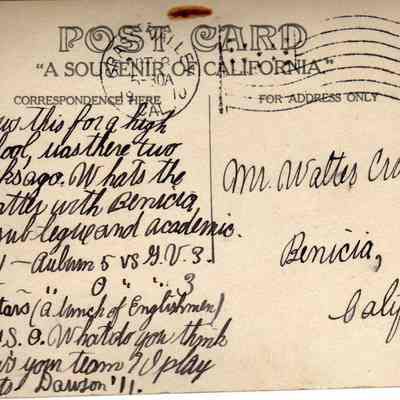 POST CARD
"A SOUVENIR OF CALIFORNIA."
CORRESPONDENCE HERE
FOR ADDRESS ONLY
this for a high
was there two
ago. Whats the
with Benicia,
and academic.
- Auburn 5 vs G.V. 3.
0 " " 3
(a bunch of Englishmen)
0. What do you think
your team? I play
Dawson '11.
Mr. Walter
Benicia,